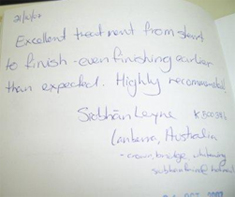 Excellent treatment from start
to finish - even finishing earlier
than expected. Highly recommended
Siobhán
Canberra, Australia
- crown, bridge, whitening
OCT 2007